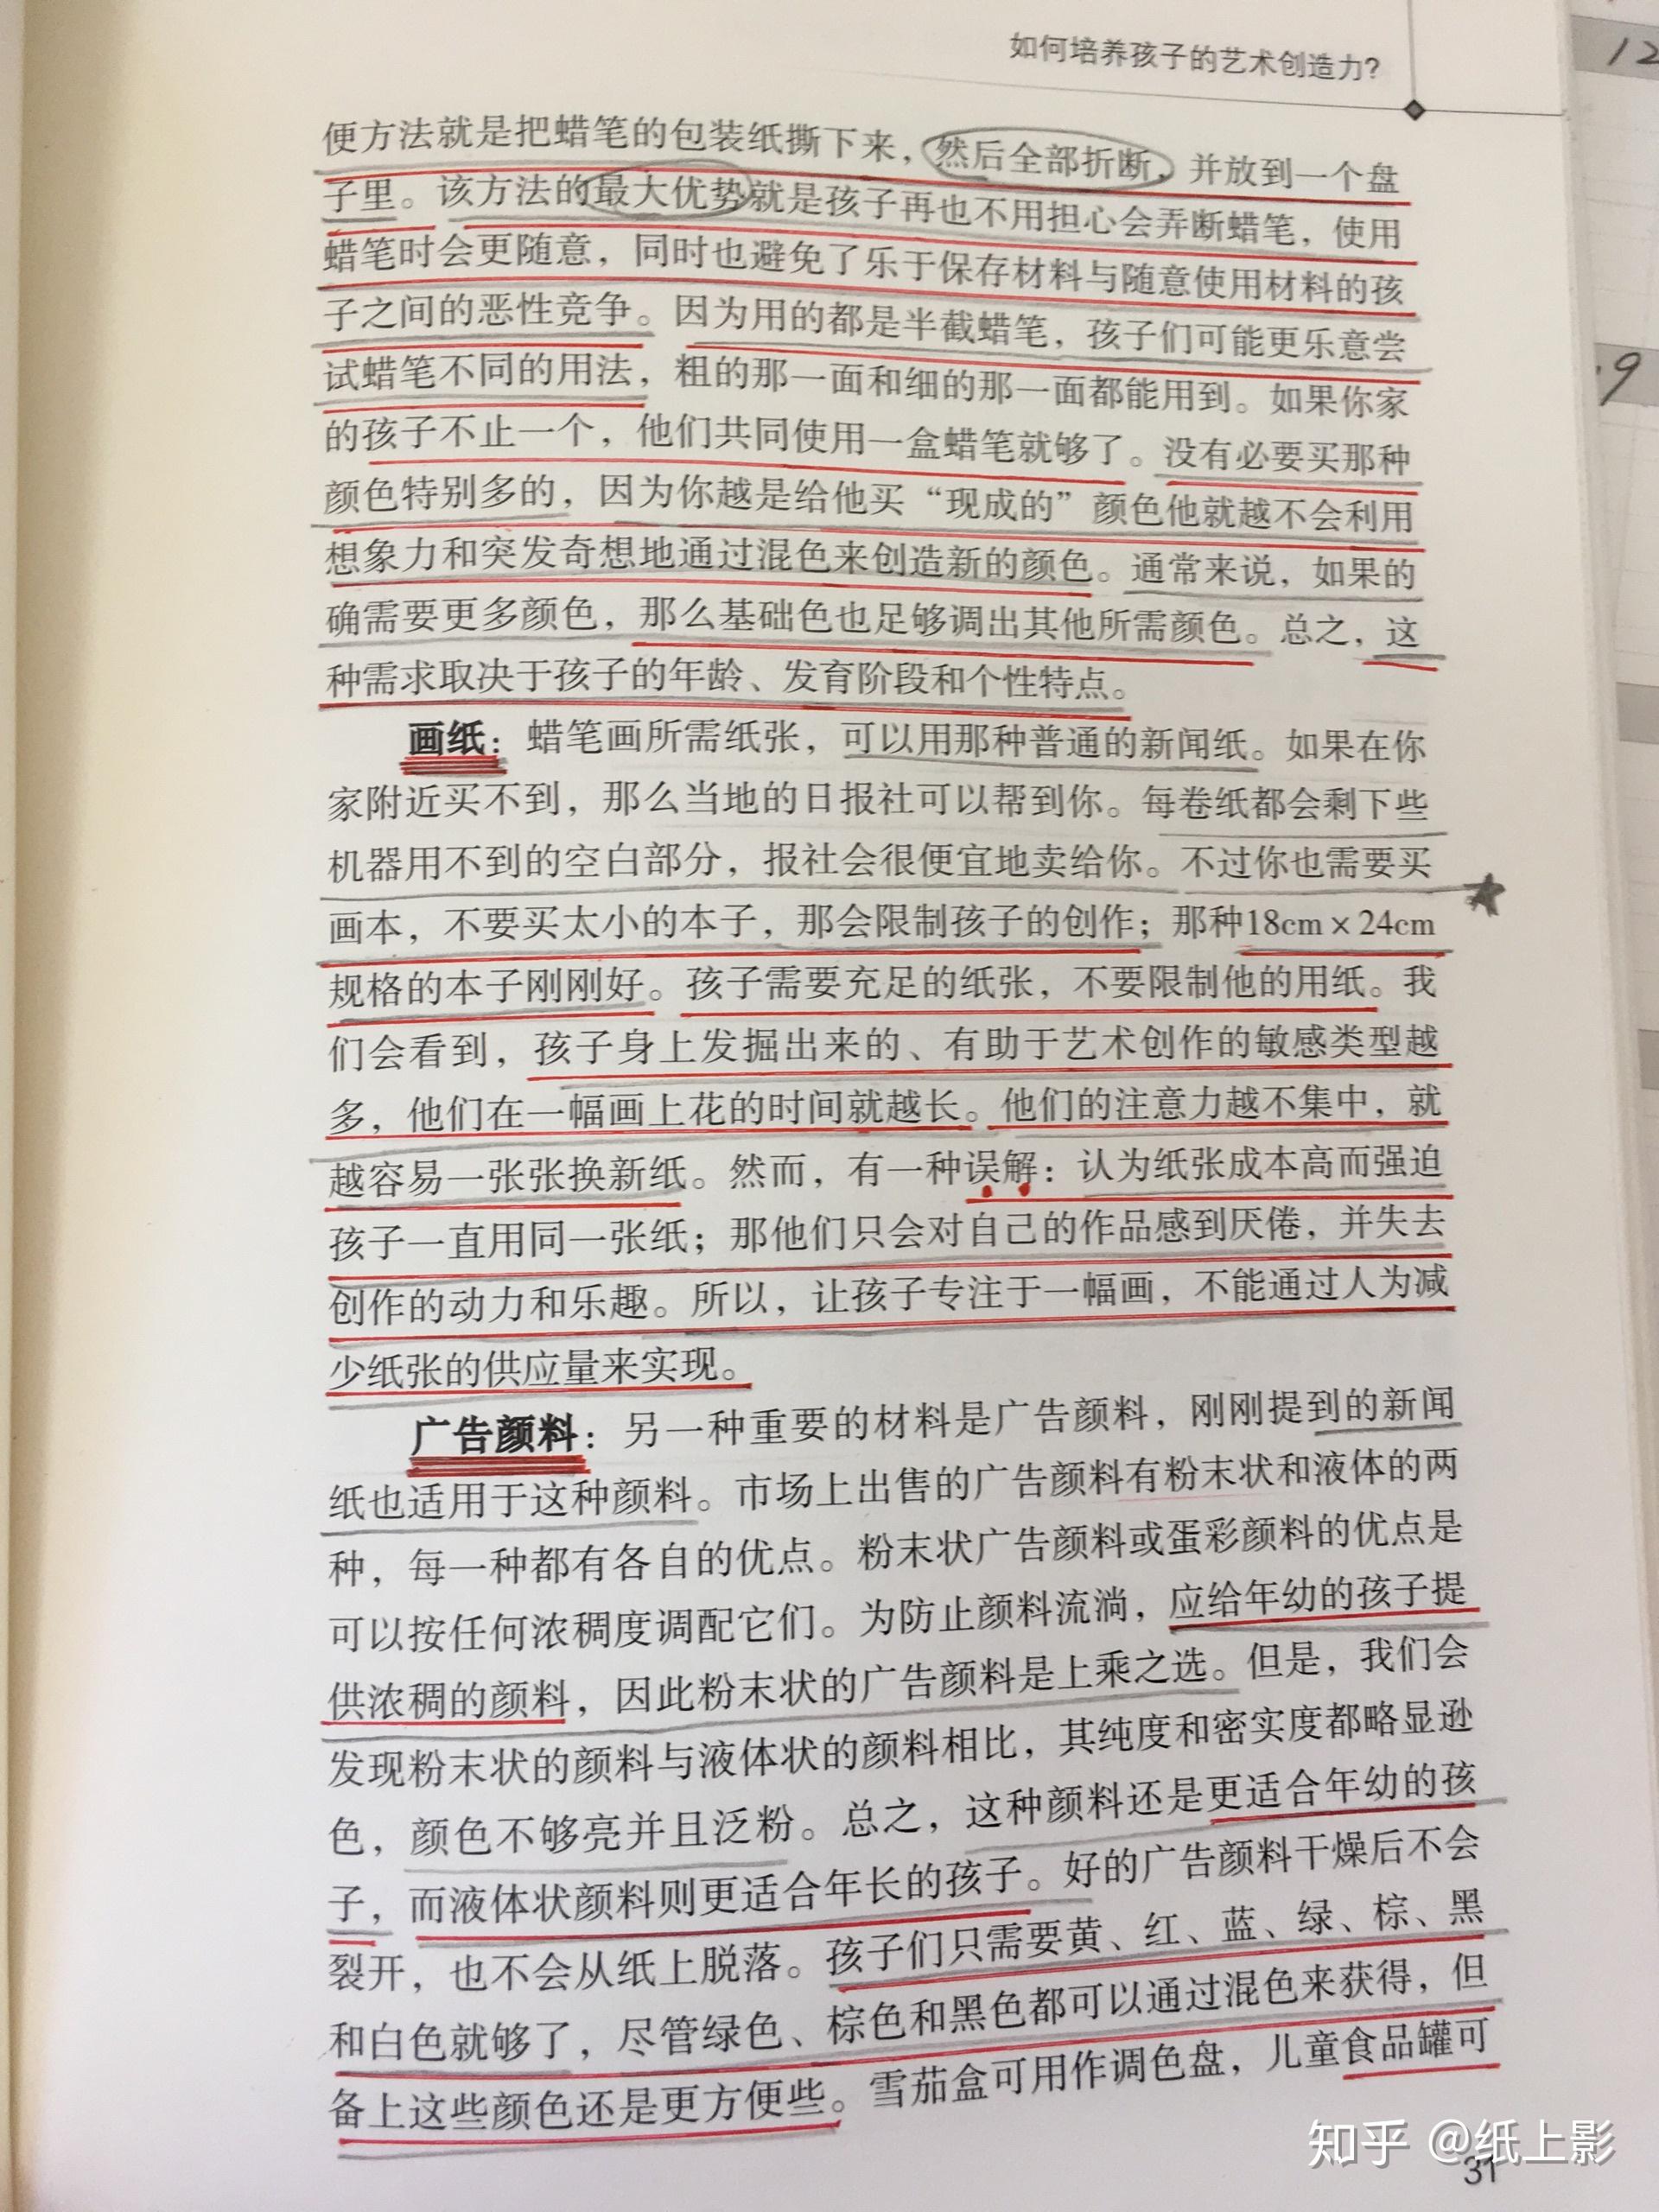 如何培养孩子的艺术创造力?
12
便方法就是把蜡笔的包装纸撕下来，然后全部折断，并放到一个盘
子里。该方法的最大优势就是孩子再也不用担心会弄断蜡笔，使用
.9
蜡笔时会更随意，同时也避免了乐于保存材料与随意使用材料的孩
子之间的恶性竞争。因为用的都是半截蜡笔，孩子们可能更乐意尝
试蜡笔不同的用法，粗的那一面和细的那一面都能用到。如果你家
的孩子不止一个，他们共同使用一盒蜡笔就够了。没有必要买那种
颜色特别多的，因为你越是给他买“现成的”颜色他就越不会利用
想象力和突发奇想地通过混色来创造新的颜色。通常来说，如果的
确需要更多颜色，那么基础色也足够调出其他所需颜色。总之，这
种需求取决于孩子的年龄、发育阶段和个性特点。
画纸：蜡笔画所需纸张，可以用那种普通的新闻纸。如果在你
家附近买不到，那么当地的日报社可以帮到你。每卷纸都会剩下些
机器用不到的空白部分，报社会很便宜地卖给你。不过你也需要买
画本，不要买太小的本子，那会限制孩子的创作；那种18cm×24cm
规格的本子刚刚好。孩子需要充足的纸张，不要限制他的用纸。我
们会看到，孩子身上发掘出来的、有助于艺术创作的敏感类型越
多，他们在一幅画上花的时间就越长。他们的注意力越不集中，就
越容易一张张换新纸。然而，有一种误解：认为纸张成本高而强迫
孩子一直用同一张纸；那他们只会对自己的作品感到厌倦，并失去
创作的动力和乐趣。所以，让孩子专注于一幅画，不能通过人为减
少纸张的供应量来实现。
广告颜料：另一种重要的材料是广告颜料，刚刚提到的新闻
纸也适用于这种颜料。市场上出售的广告颜料有粉末状和液体的两
种，每一种都有各自的优点。粉末状广告颜料或蛋彩颜料的优点是
可以按任何浓稠度调配它们。为防止颜料流淌，应给年幼的孩子提
供浓稠的颜料，因此粉末状的广告颜料是上乘之选。但是，我们会
发现粉末状的颜料与液体状的颜料相比，其纯度和密实度都略显逊
色，颜色不够亮并且泛粉。总之，这种颜料还是更适合年幼的孩
子，而液体状颜料则更适合年长的孩子。好的广告颜料干燥后不会
裂开，也不会从纸上脱落。孩子们只需要黄、红、蓝、绿、棕、黑
和白色就够了，尽管绿色、棕色和黑色都可以通过混色来获得，但
备上这些颜色还是更方便些。雪茄盒可用作调色盘，儿童食品罐可
知乎 @纸上影
31